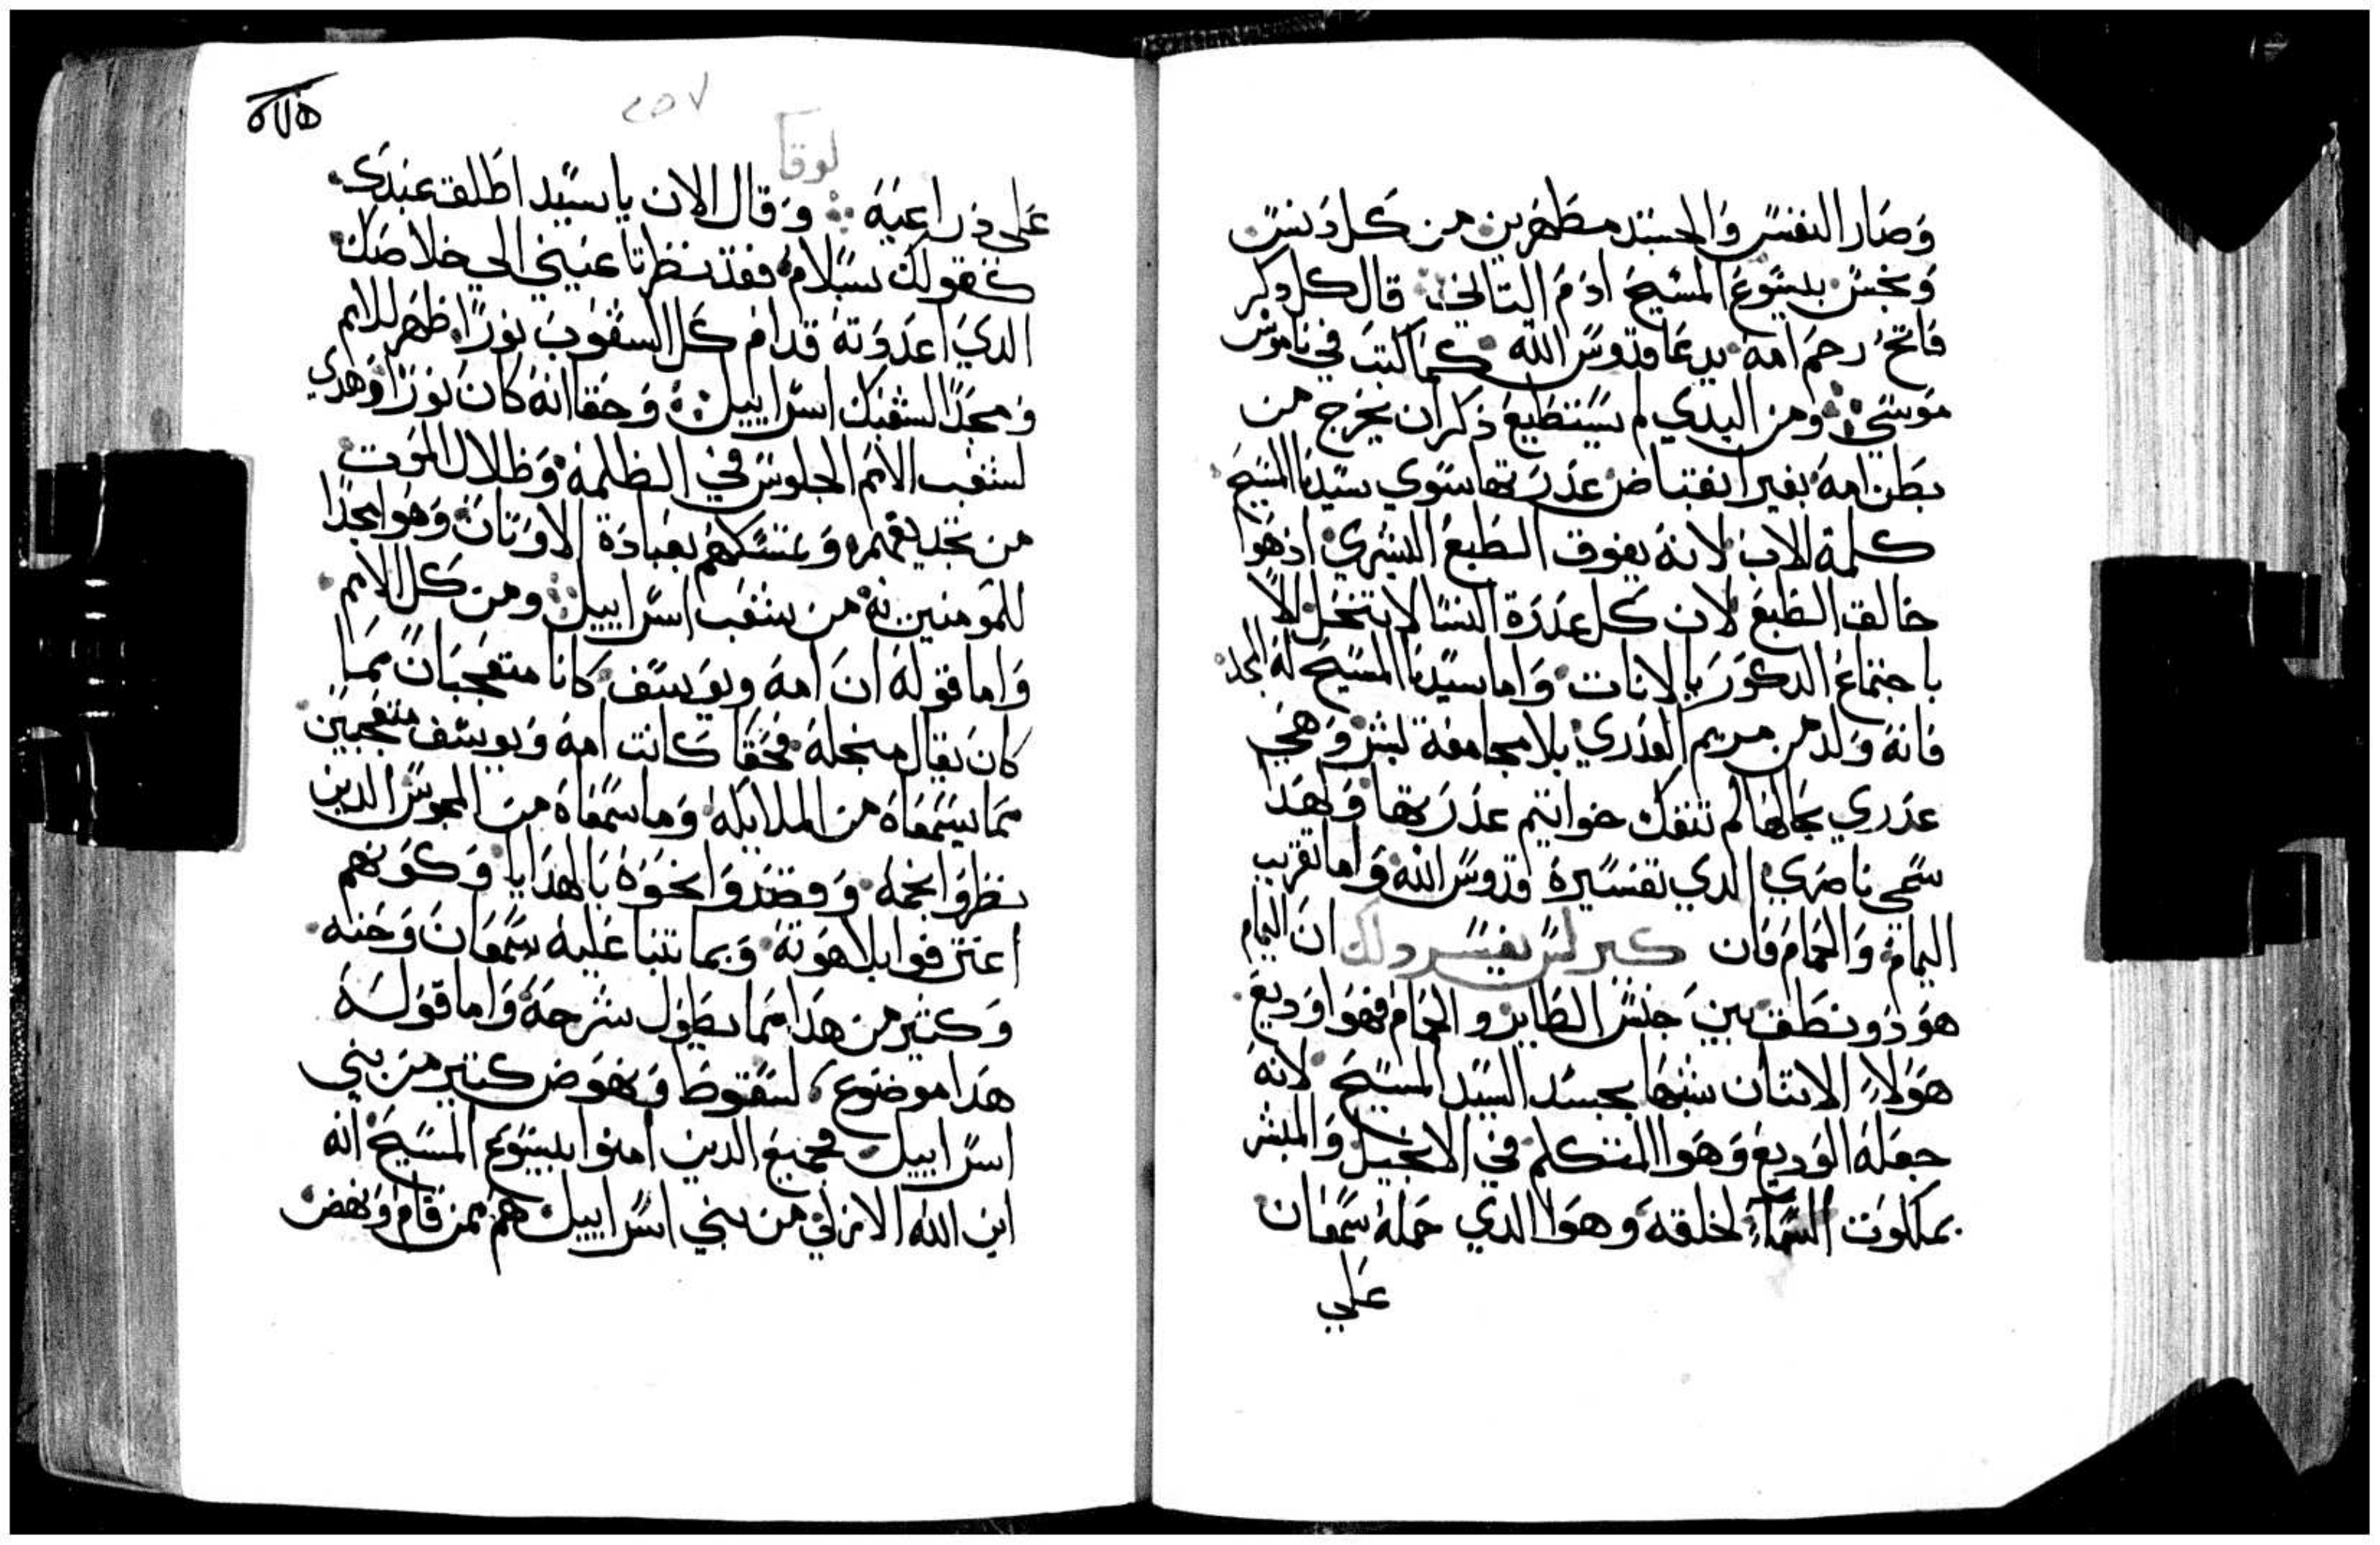 وصار النفس والجسد مطهرين من كل دنس
ونجس بيسوع المسيح ادم التاني قال كل دكر
فاتح رحم امه يدعا قدوس الله كما كتب في ناموس
موسي ومن البدي لم يستطيع ذكر ان يخرج من
بطن امه بغير انفتاض عدرتها سوي سيدنا المسيح
كلمة الاب لانه يفوق الطبع البشري اذ هوا
خالق الطبع لان كل عدرة النسا لا تنحل الا
باجتماع الدكور بالانات واما سيدنا المسيح له المجد
فانه ولد من مريم العدري بلا مجامعة بشر وهي
عدري بحالها لم تنفك خواتيم عدرتها ولهدا
سمي ناصري الدي تفسيره قدوس الله واما تقريب
اليمام والحمام فان كيرلس يفسر دلك ان اليمام
هو ذو نطق بين جنس الطاير والحمام فهوا وديع
هولاء الاتنان شبها بجسد السيد المسيح لانه
جعله الوديع وهوا المتكلم في الانجيل والمبشر
بملكوت السماء لخلقه وهوا الدي حمله سمعان
علي
٢٥٧
لوقا
علي ذراعيه وقال الان يا سيد اطلق عبدك
كقولك بسلام فقد نظرتا عيني الي خلاصك
الدي اعدوته قدام كل الشعوب نورا ظهر للامم
ومجدا لشعبك اسراييل وحقا انه كان نورا وهدي
لشعب الامم الجلوس في الظلمة وظلال الموت
من تجديفهم وتمسكهم بعبادة الاوتان وهوا مجدا
للمومنين به من شعب اسراييل ومن كل الامم
واما قوله ان امه ويوسف كانا متعجبان مما
كان يقال منجله فحقا كانت امه ويوسف متعجبين
مما يسمعاه من الملايكه وما سمعاه من المجوس الدين
نظروا نجمه وقصدوا نحوه بالهدايا وكونهم
اعترفوا بلاهوته وبما تنبا عليه سمعان وحنه
وكثير من هدا مما يطول شرحه واما قوله
هدا موضوع لسقوط ونهوض كتير من بني
اسراييل فجميع الدين امنوا بيسوع المسيح انه
ابن الله الازلي من بني اسراييل هم ممن قام ونهض